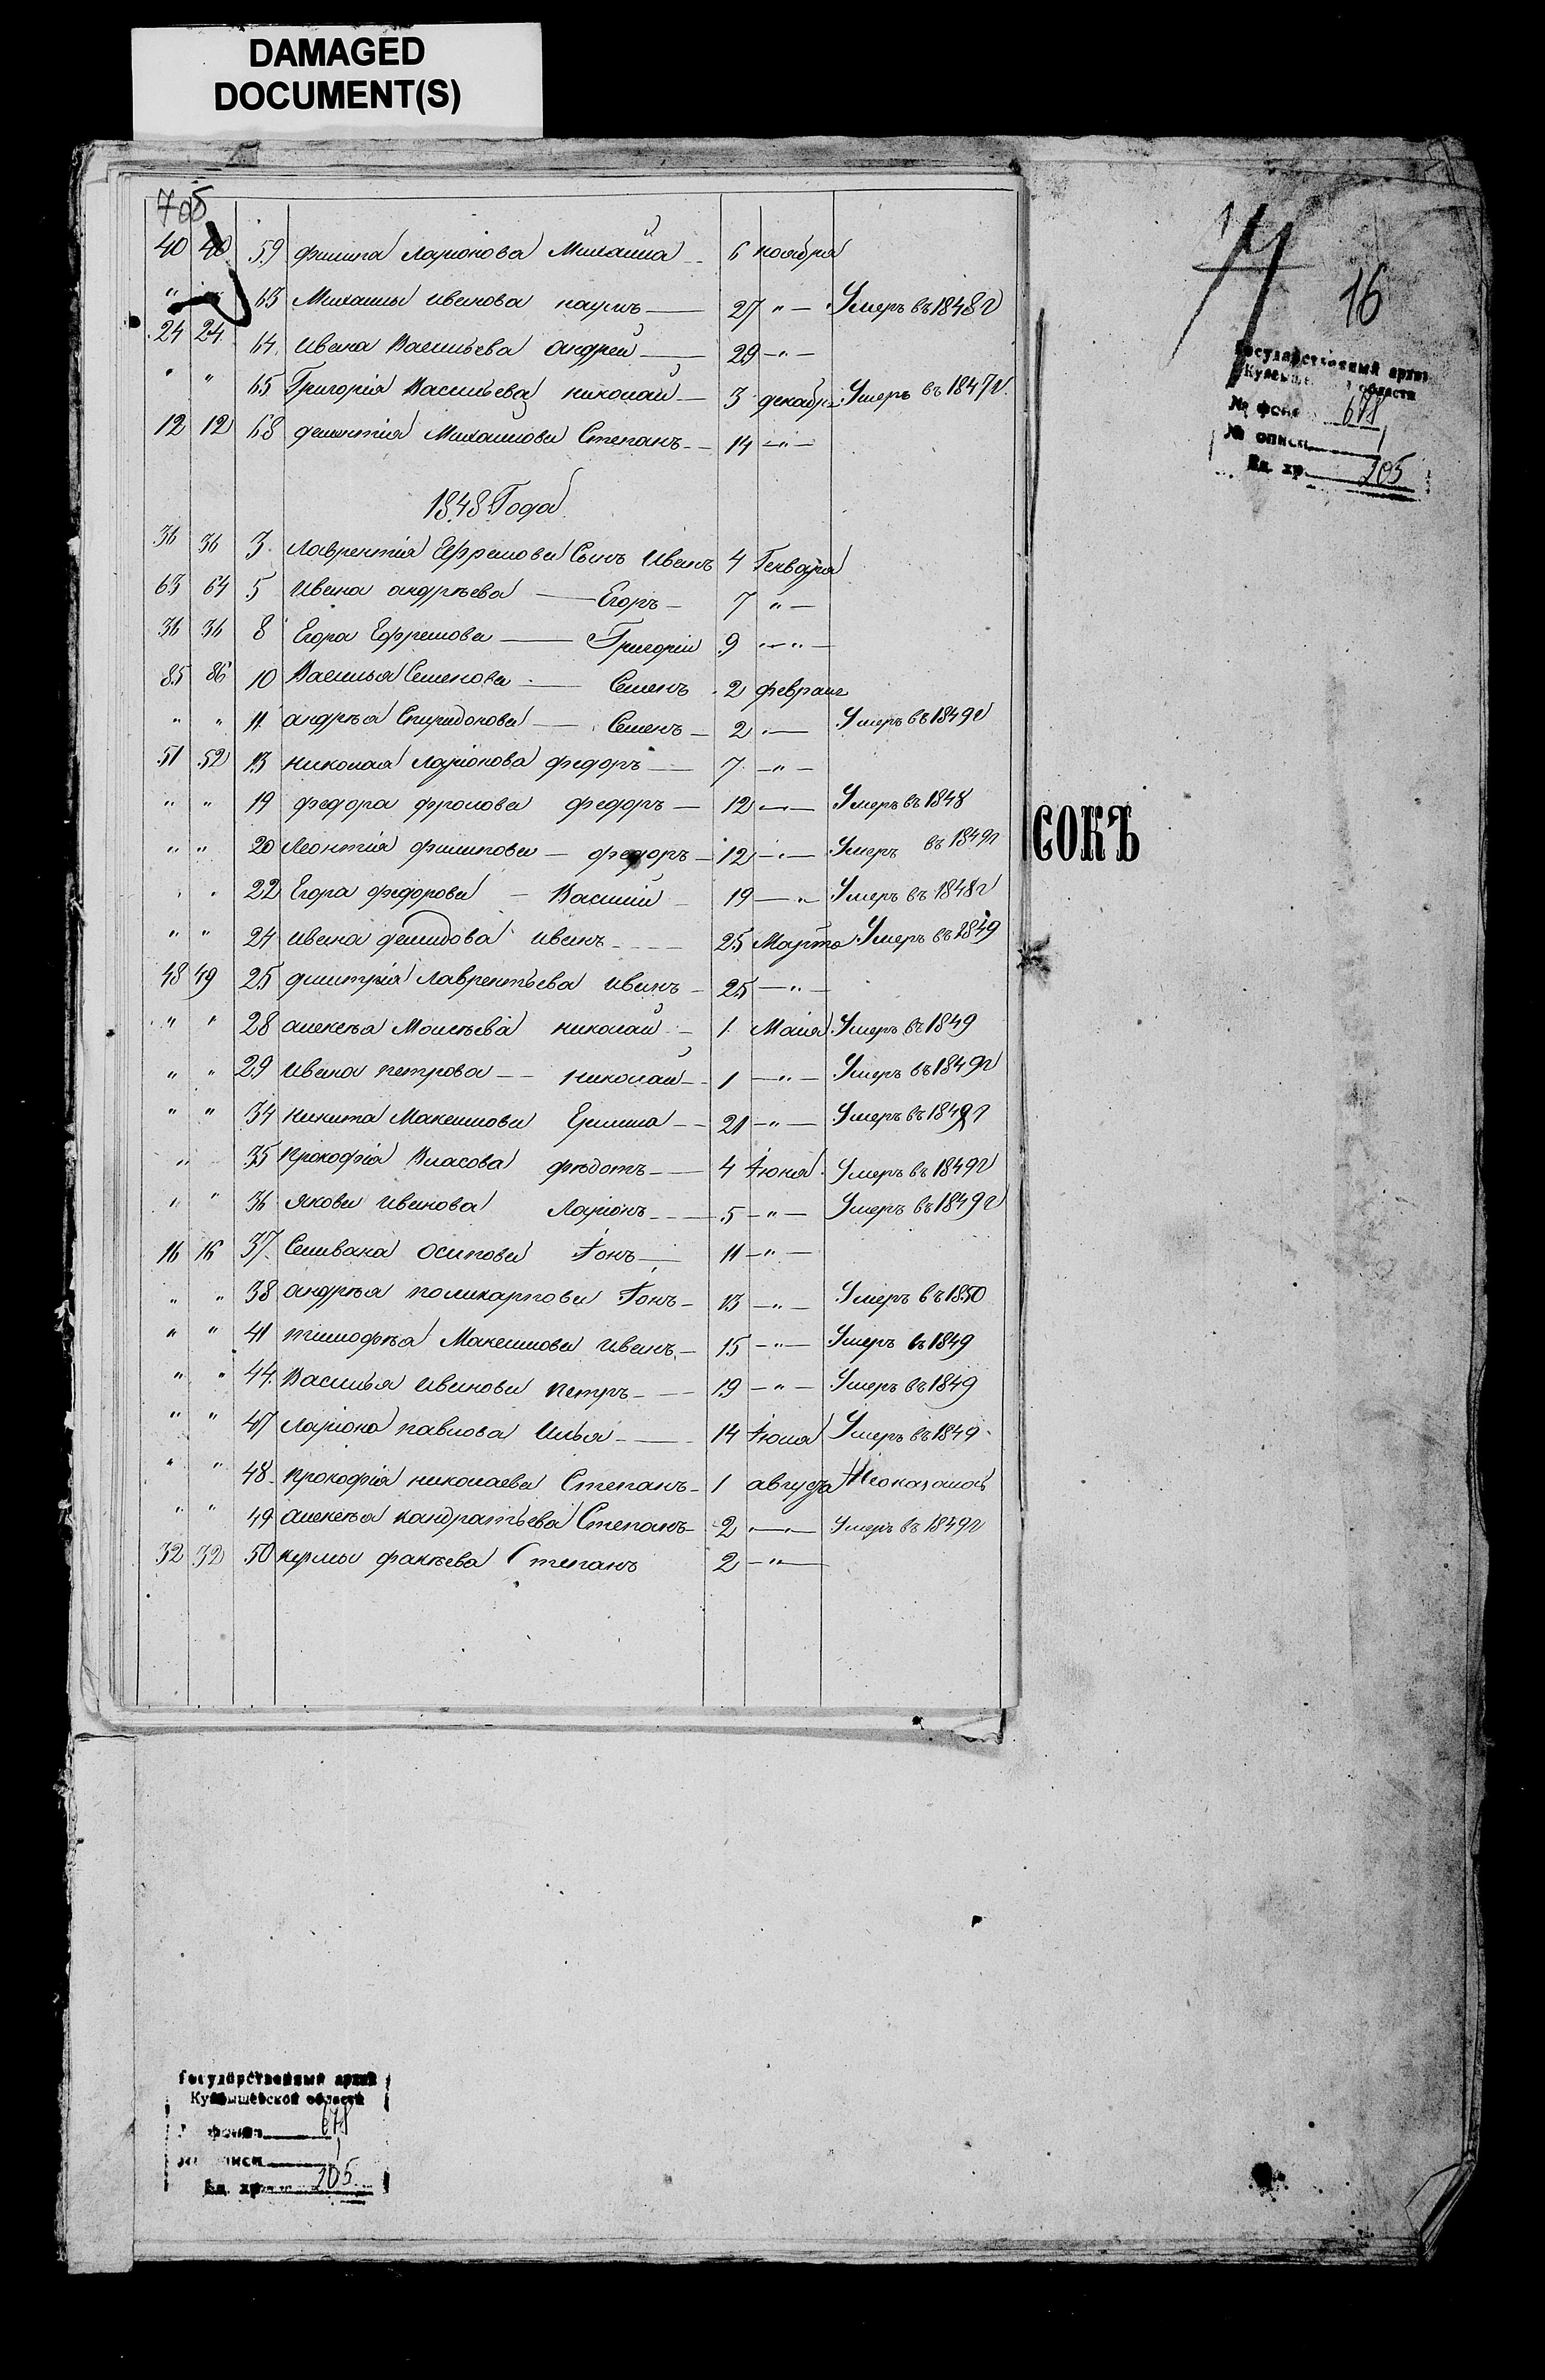 DAMAGED
DOCUMENT(S)
705
40 40 59 филипа Ларіонова Михайла 6 ноября
" " 63 Михаилы Иванова наумъ 27 " Умеръ въ 1848 г
24 24 64 Ивана Васильева андрей 29 "
" " 65 Григорія Васильева николай 3 декабря Умеръ въ 1847 г.
12 12 68 дементія Михаилова Степанъ 14 "
1848 Года
36 36 3 Лаврентія Ефремова Сынъ Иванъ 4 Генваря
63 64 5 Ивана андрѣева Егоръ 7 "
36 36 8 Егора Ефремова Григорій 9 "
85 86 10 Василья Семенова Семенъ 2 февраля
" " 11 андрѣя Спиридонова Семенъ 2 " Умеръ въ 1849 г
51 52 13 николая Ларіонова федоръ 7 "
" " 19 федора фролова федоръ 12 " Умеръ въ 1848
" " 20 Леонтія филипова федоръ 12 " Умеръ въ 1849 г
" " 22 Егора федорова Василий 19 " Умеръ въ 1848 г
" " 24 Ивана демидова Иванъ 25 Марта Умеръ въ 1849
48 49 25 дмитрія Лаврентьева Иванъ 25 "
" " 28 алексѣя Моисѣева николай 1 Майя Умеръ въ 1849
" " 29 Ивана петрова николай 1 " Умеръ въ 1849 г
" " 34 никита Максимова Ермила 21 " Умеръ въ 1849 г
" 35 прокофія Власова фѣдотъ 4 Іюня Умеръ въ 1849 г
" " 36 Якова Иванова Ларіонъ 5 " Умеръ въ 1849 г
16 16 37 Селивана осипова Іонъ 11 "
" " 38 андрѣя поликарпова Іонъ 13 " Умеръ въ 1850
" " 41 тимофѣя Максимова Иванъ 15 " Умеръ въ 1849
" " 44 Василья Иванова петръ 19 " Умеръ въ 1849
" " 47 Ларіона павлова Илья 14 Іюля Умеръ въ 1849
" " 48 прокофія николаева Степанъ 1 августа
" " 49 алексѣя кандратьева Степанъ 2 " Умеръ въ 1849 г
32 32 50 кузмы факѣева Степанъ 2 "
СОКЪ
16
Государственный архив
Куйбышевской области
№ фонда 678
№ описи 1
Ед. хр. 205
Государственный архив
Куйбышевской области
№ фонда 678
№ описи 1
Ед. хр. 205